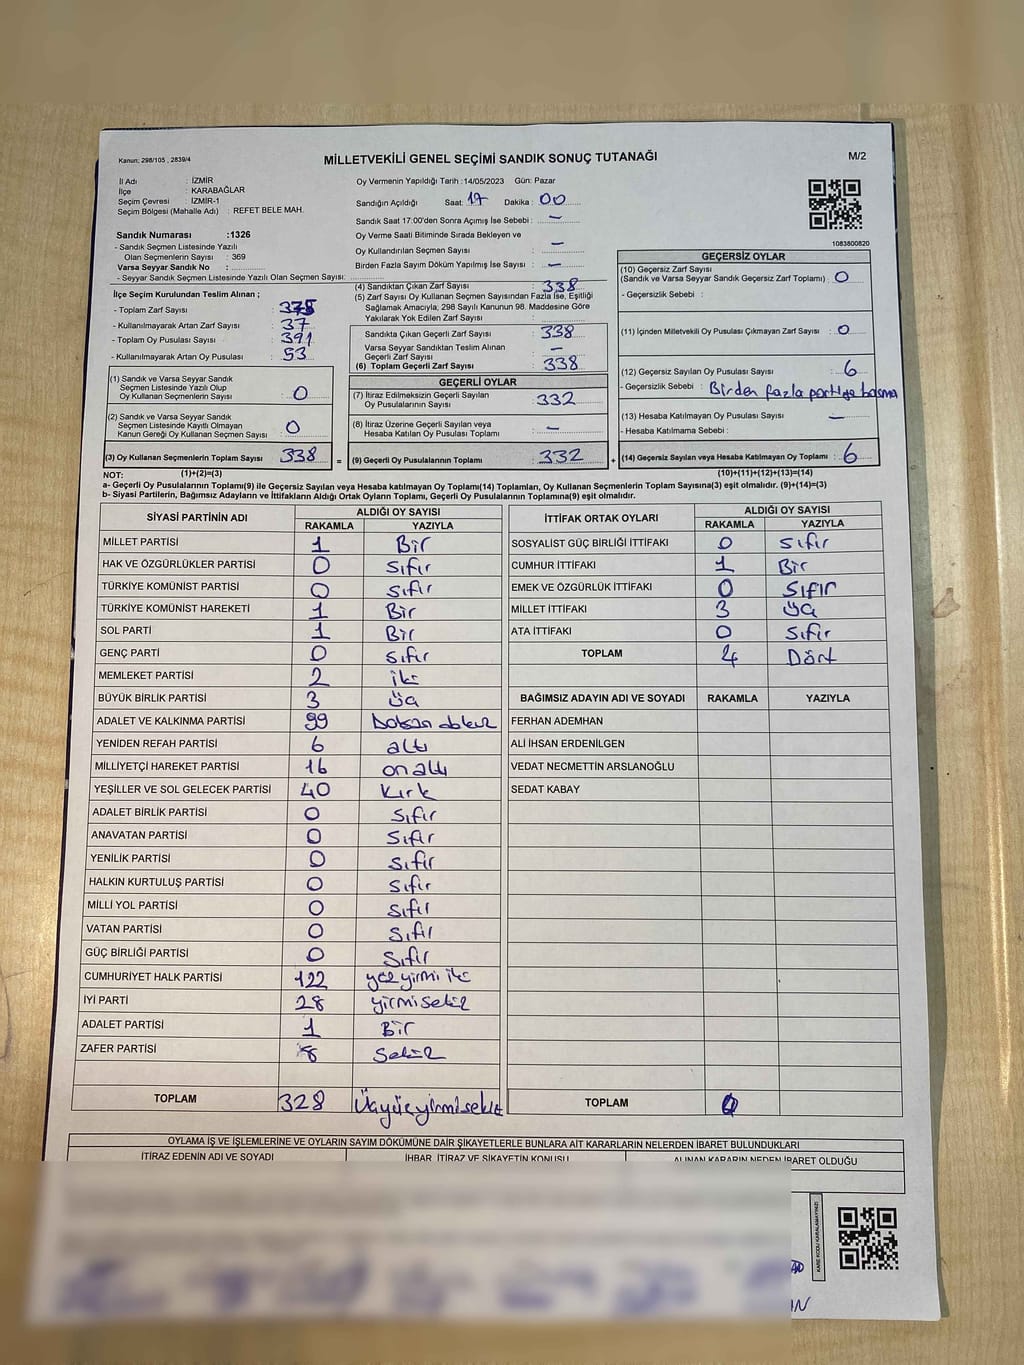 Kanun; 298/105 , 2839/4
MİLLETVEKİLİ GENEL SEÇİMİ SANDIK SONUÇ TUTANAĞI
M/2
İl Adı : İZMİR
İlçe : KARABAĞLAR
Seçim Çevresi : İZMİR-1
Seçim Bölgesi (Mahalle Adı) : REFET BELE MAH.
Sandık Numarası :1326
- Sandık Seçmen Listesinde Yazılı
Olan Seçmenlerin Sayısı : 369
Varsa Seyyar Sandık No :
- Seyyar Sandık Seçmen Listesinde Yazılı Olan Seçmen Sayısı:
Oy Vermenin Yapıldığı Tarih :14/05/2023 Gün: Pazar
Sandığın Açıldığı Saat: 17 Dakika : 00
Sandık Saat 17:00'den Sonra Açımış İse Sebebi : –
Oy Verme Saati Bitiminde Sırada Bekleyen ve
Oy Kullandırılan Seçmen Sayısı : –
Birden Fazla Sayım Döküm Yapılmış İse Sayısı : –
1083800820
İlçe Seçim Kurulundan Teslim Alınan ;
- Toplam Zarf Sayısı : 375
- Kullanılmayarak Artan Zarf Sayısı : 37
- Toplam Oy Pusulası Sayısı : 391
- Kullanılmayarak Artan Oy Pusulası : 53
(1) Sandık ve Varsa Seyyar Sandık
Seçmen Listesinde Yazılı Olup
Oy Kullanan Seçmenlerin Sayısı : 0
(2) Sandık ve Varsa Seyyar Sandık
Seçmen Listesinde Kayıtlı Olmayan
Kanun Gereği Oy Kullanan Seçmen Sayısı : 0
(3) Oy Kullanan Seçmenlerin Toplam Sayısı : 338
(4) Sandıktan Çıkan Zarf Sayısı : 338
(5) Zarf Sayısı Oy Kullanan Seçmen Sayısından Fazla İse, Eşitliği
Sağlamak Amacıyla, 298 Sayılı Kanunun 98. Maddesine Göre
Yakılarak Yok Edilen Zarf Sayısı :
Sandıkta Çıkan Geçerli Zarf Sayısı : 338
Varsa Seyyar Sandıktan Teslim Alınan
Geçerli Zarf Sayısı : –
(6) Toplam Geçerli Zarf Sayısı : 338
GEÇERLİ OYLAR
(7) İtiraz Edilmeksizin Geçerli Sayılan
Oy Pusulalarının Sayısı : 332
(8) İtiraz Üzerine Geçerli Sayılan veya
Hesaba Katılan Oy Pusulası Toplamı : –
= (9) Geçerli Oy Pusulalarının Toplamı : 332
GEÇERSİZ OYLAR
(10) Geçersiz Zarf Sayısı
(Sandık ve Varsa Seyyar Sandık Geçersiz Zarf Toplamı) : 0
- Geçersizlik Sebebi :
(11) İçinden Milletvekili Oy Pusulası Çıkmayan Zarf Sayısı : 0
(12) Geçersiz Sayılan Oy Pusulası Sayısı : 6
- Geçersizlik Sebebi : Birden fazla partiye basma
(13) Hesaba Katılmayan Oy Pusulası Sayısı : –
- Hesaba Katılmama Sebebi :
+ (14) Geçersiz Sayılan veya Hesaba Katılmayan Oy Toplamı : 6
NOT: (1)+(2)=(3) (10)+(11)+(12)+(13)=(14)
a- Geçerli Oy Pusulalarının Toplamı(9) ile Geçersiz Sayılan veya Hesaba Katılmayan Oy Toplamı(14) Toplamları, Oy Kullanan Seçmenlerin Toplam Sayısına(3) eşit olmalıdır. (9)+(14)=(3)
b- Siyasi Partilerin, Bağımsız Adayların ve İttifakların Aldığı Ortak Oyların Toplamı, Geçerli Oy Pusulalarının Toplamına(9) eşit olmalıdır.
SİYASİ PARTİNİN ADI ALDIĞI OY SAYISI
RAKAMLA YAZIYLA
MİLLET PARTİSİ 1 Bir
HAK VE ÖZGÜRLÜKLER PARTİSİ 0 Sıfır
TÜRKİYE KOMÜNİST PARTİSİ 0 Sıfır
TÜRKİYE KOMÜNİST HAREKETİ 1 Bir
SOL PARTİ 1 Bir
GENÇ PARTİ 0 Sıfır
MEMLEKET PARTİSİ 2 iki
BÜYÜK BİRLİK PARTİSİ 3 üç
ADALET VE KALKINMA PARTİSİ 99 Doksan dokuz
YENİDEN REFAH PARTİSİ 6 altı
MİLLİYETÇİ HAREKET PARTİSİ 16 on altı
YEŞİLLER VE SOL GELECEK PARTİSİ 40 Kırk
ADALET BİRLİK PARTİSİ 0 Sıfır
ANAVATAN PARTİSİ 0 Sıfır
YENİLİK PARTİSİ 0 Sıfır
HALKIN KURTULUŞ PARTİSİ 0 Sıfır
MİLLİ YOL PARTİSİ 0 Sıfır
VATAN PARTİSİ 0 Sıfır
GÜÇ BİRLİĞİ PARTİSİ 0 Sıfır
CUMHURİYET HALK PARTİSİ 122 yüz yirmi iki
İYİ PARTİ 28 yirmi sekiz
ADALET PARTİSİ 1 Bir
ZAFER PARTİSİ 8 Sekiz
TOPLAM 328 Üçyüzyirmisekiz
İTTİFAK ORTAK OYLARI ALDIĞI OY SAYISI
RAKAMLA YAZIYLA
SOSYALİST GÜÇ BİRLİĞİ İTTİFAKI 0 Sıfır
CUMHUR İTTİFAKI 1 Bir
EMEK VE ÖZGÜRLÜK İTTİFAKI 0 Sıfır
MİLLET İTTİFAKI 3 üç
ATA İTTİFAKI 0 Sıfır
TOPLAM 4 Dört
BAĞIMSIZ ADAYIN ADI VE SOYADI RAKAMLA YAZIYLA
FERHAN ADEMHAN
ALİ İHSAN ERDENİLGEN
VEDAT NECMETTİN ARSLANOĞLU
SEDAT KABAY
TOPLAM 0
OYLAMA İŞ VE İŞLEMLERİNE VE OYLARIN SAYIM DÖKÜMÜNE DAİR ŞİKAYETLERLE BUNLARA AİT KARARLARIN NELERDEN İBARET BULUNDUKLARI
İTİRAZ EDENİN ADI VE SOYADI İHBAR, İTİRAZ VE ŞİKAYETİN KONUSU ALINAN KARARIN NEDEN İBARET OLDUĞU
KARE KODU KARALAMAYINIZ!